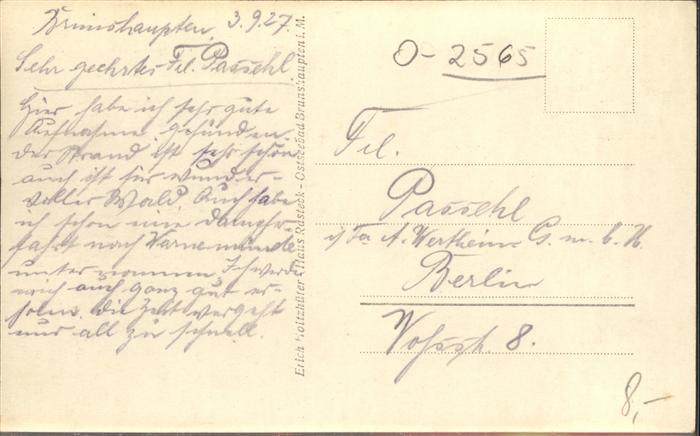 Brunshaupten, 3.9.27.
Sehr geehrtes Frl. Passehl.
Hier habe ich sehr gute
Aufnahme gefunden.
Der Strand ist sehr schön
auch ist hier wunder-
voller Wald. Auch habe
ich schon eine Dampfer-
fahrt nach Warnemünde
unternommen. Ich werde
mich auch ganz gut er-
holen. Die Zeit vergeht
nur all zu schnell.
Erich Holtzhüter Haus Rasteck - Ostseebad Brunshaupten i. M.
O-2565
Frl.
Passehl
i/Fa A. Wertheim G. m. b. H.
Berlin
Vossstr. 8.
8,-